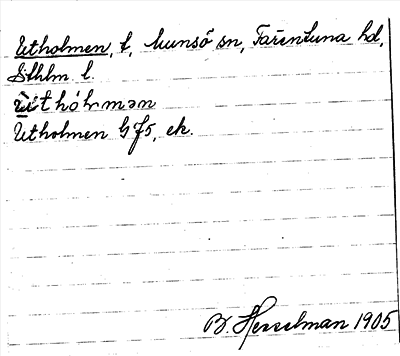 Utholmen, t, Munsö sn, Färentuna hd,
Sthlm l.
Utholmen G75, ek.
B. Hesselman 1905